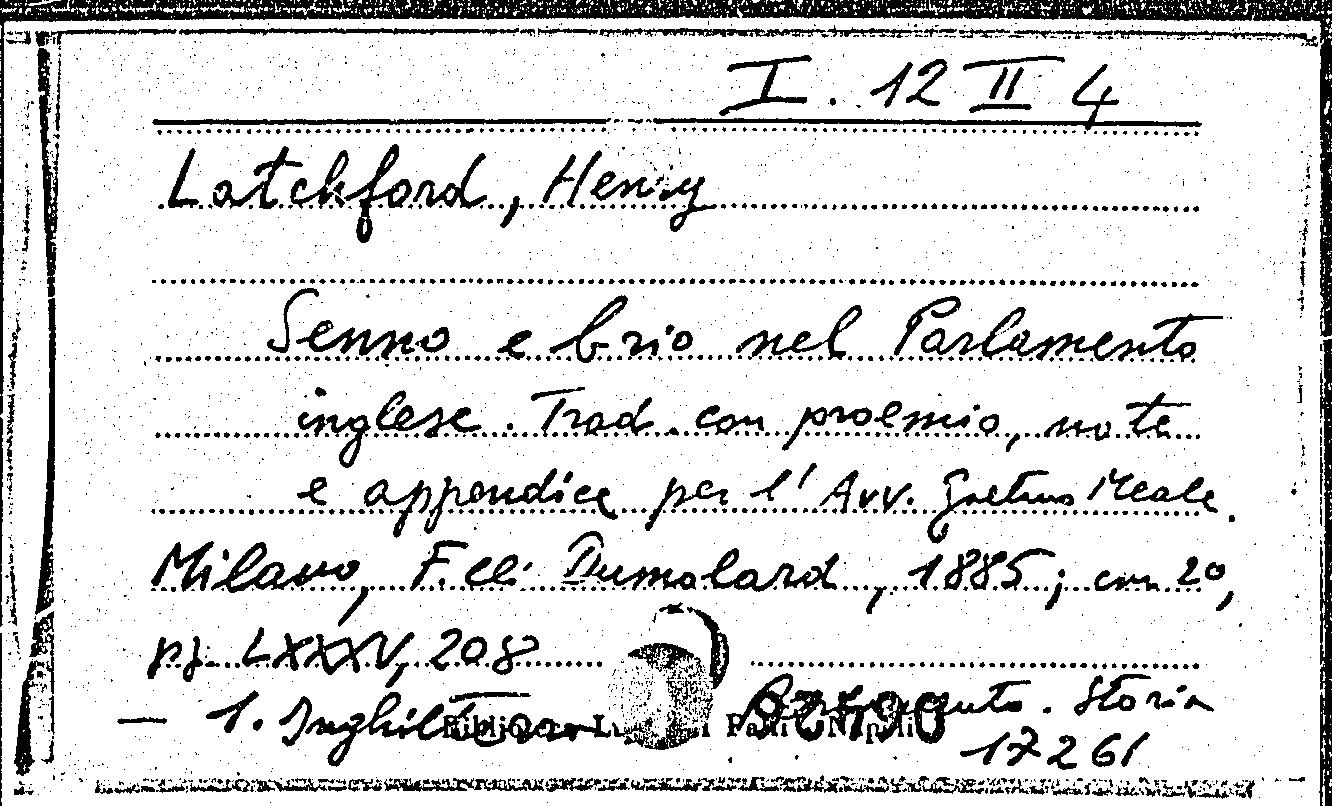 I. 12 II 4
Latchford, Henry
Senno e brio nel Parlamento
inglese. Trad. con proemio, note
e appendice per l' Avv. Gaetano Meale.
Milano, F.lli Dumolard, 1885; cm 20,
pp. LXXXV, 208
— 1. Inghilterra Parlamento. Storia
17261